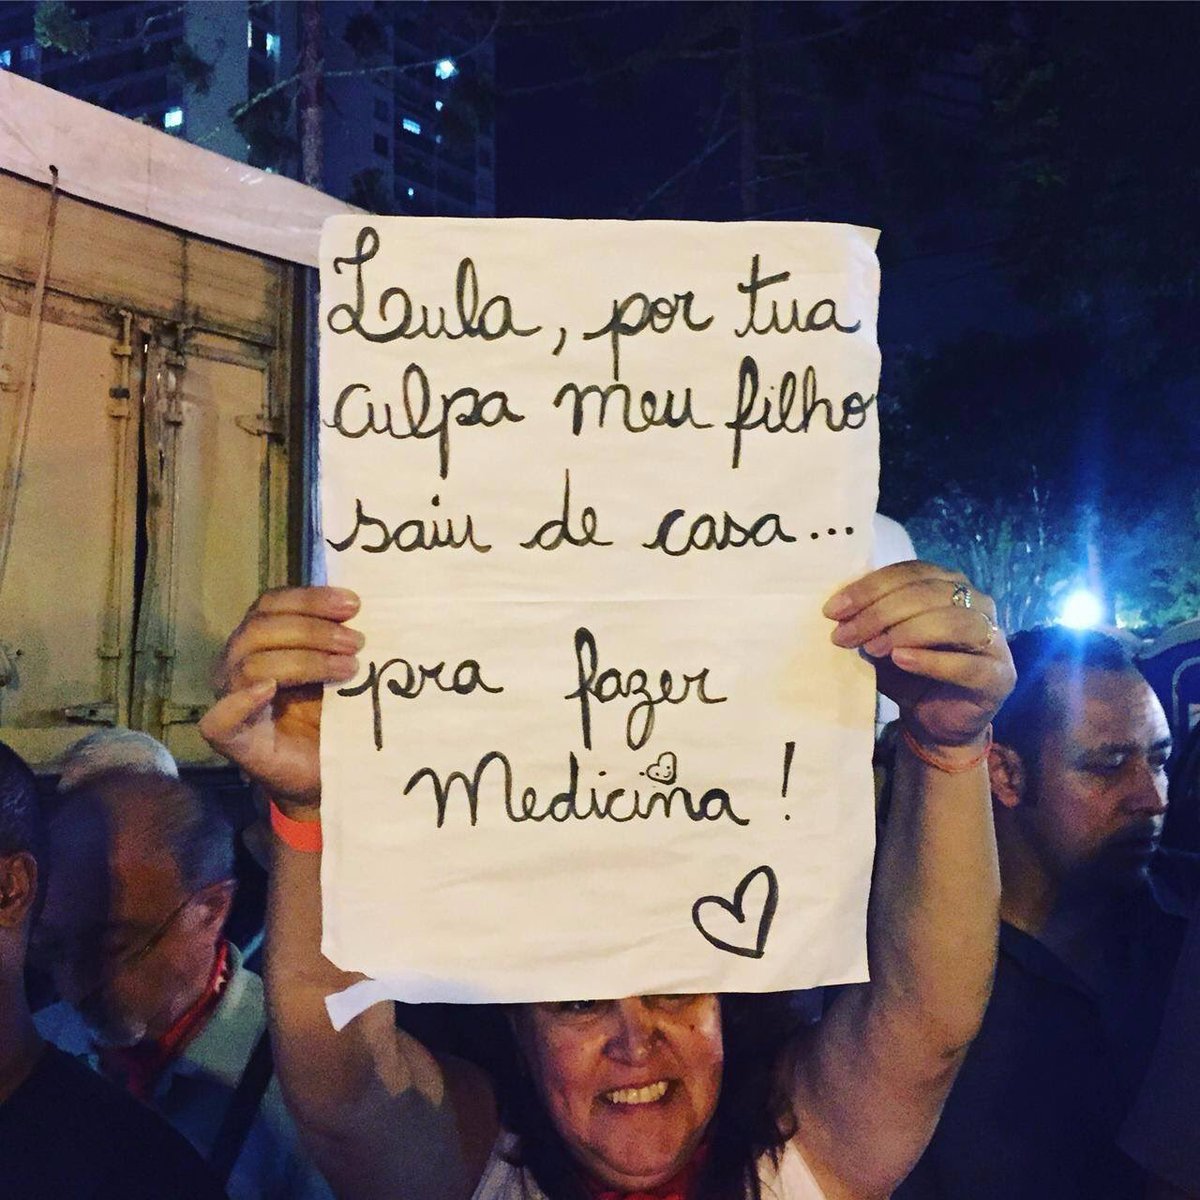 Lula, por tua
culpa meu filho
saiu de casa...
pra fazer
Medicina!